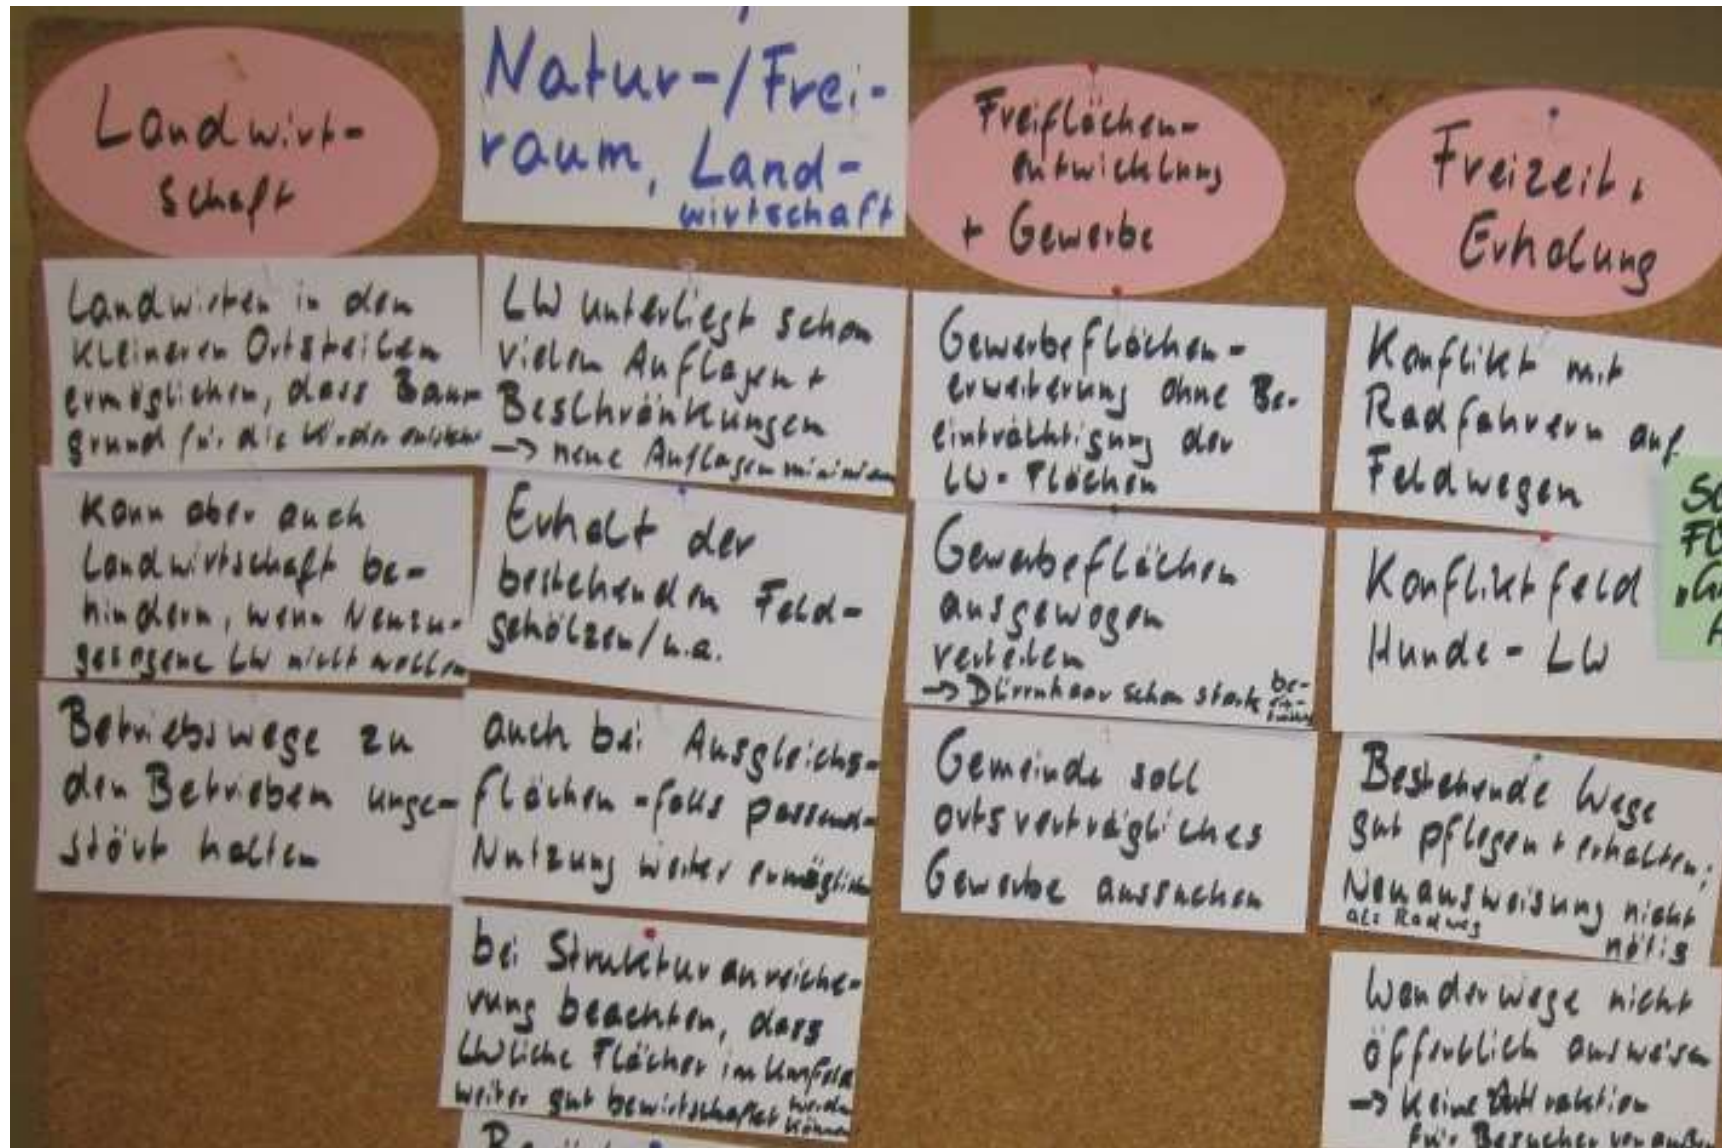 Natur-/Frei-
raum, Land-
wirtschaft
Landwirt-
schaft
Landwirten in den
kleineren Ortsteilen
ermöglichen, dass Bau-
grund für die Kinder entsteht
Kann aber auch
Landwirtschaft be-
hindern, wenn Neuzu-
gezogene LW nicht wollen
Betriebswege zu
den Betrieben unge-
stört halten
LW unterliegt schon
vielen Auflagen +
Beschränkungen
→ neue Auflagen minimieren
Erhalt der
bestehenden Feld-
gehölzen/u.a.
auch bei Ausgleichs-
flächen - falls passend -
Nutzung weiter ermöglichen
bei Strukturanreiche-
rung beachten, dass
LWliche Flächen im Umfeld
weiter gut bewirtschaftet werden
können
Freiflächen-
entwicklung
+ Gewerbe
Gewerbeflächen-
erweiterung ohne Be-
einträchtigung der
LW-Flächen
Gewerbeflächen
ausgewogen
verteilen
→ Dürrnhaar schon stark be-
Gemeinde soll
ortsverträgliches
Gewerbe aussuchen
Freizeit,
Erholung
Konflikt mit
Radfahrern auf
Feldwegen
Konfliktfeld
Hunde - LW
Bestehende Wege
gut pflegen + erhalten;
Neuausweisung nicht
als Radweg
nötig
Wanderwege nicht
öffentlich ausweisen
→ Keine Attraktion
für Besucher von außen